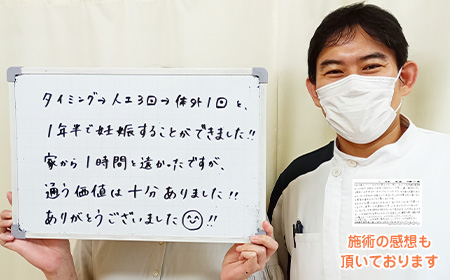 タイミング→人工3回→体外1回と、
1年半で妊娠することができました!!
家から1時間と遠かったですが、
通う価値は十分ありました!!
ありがとうございました☺!!
施術の感想も
頂いております